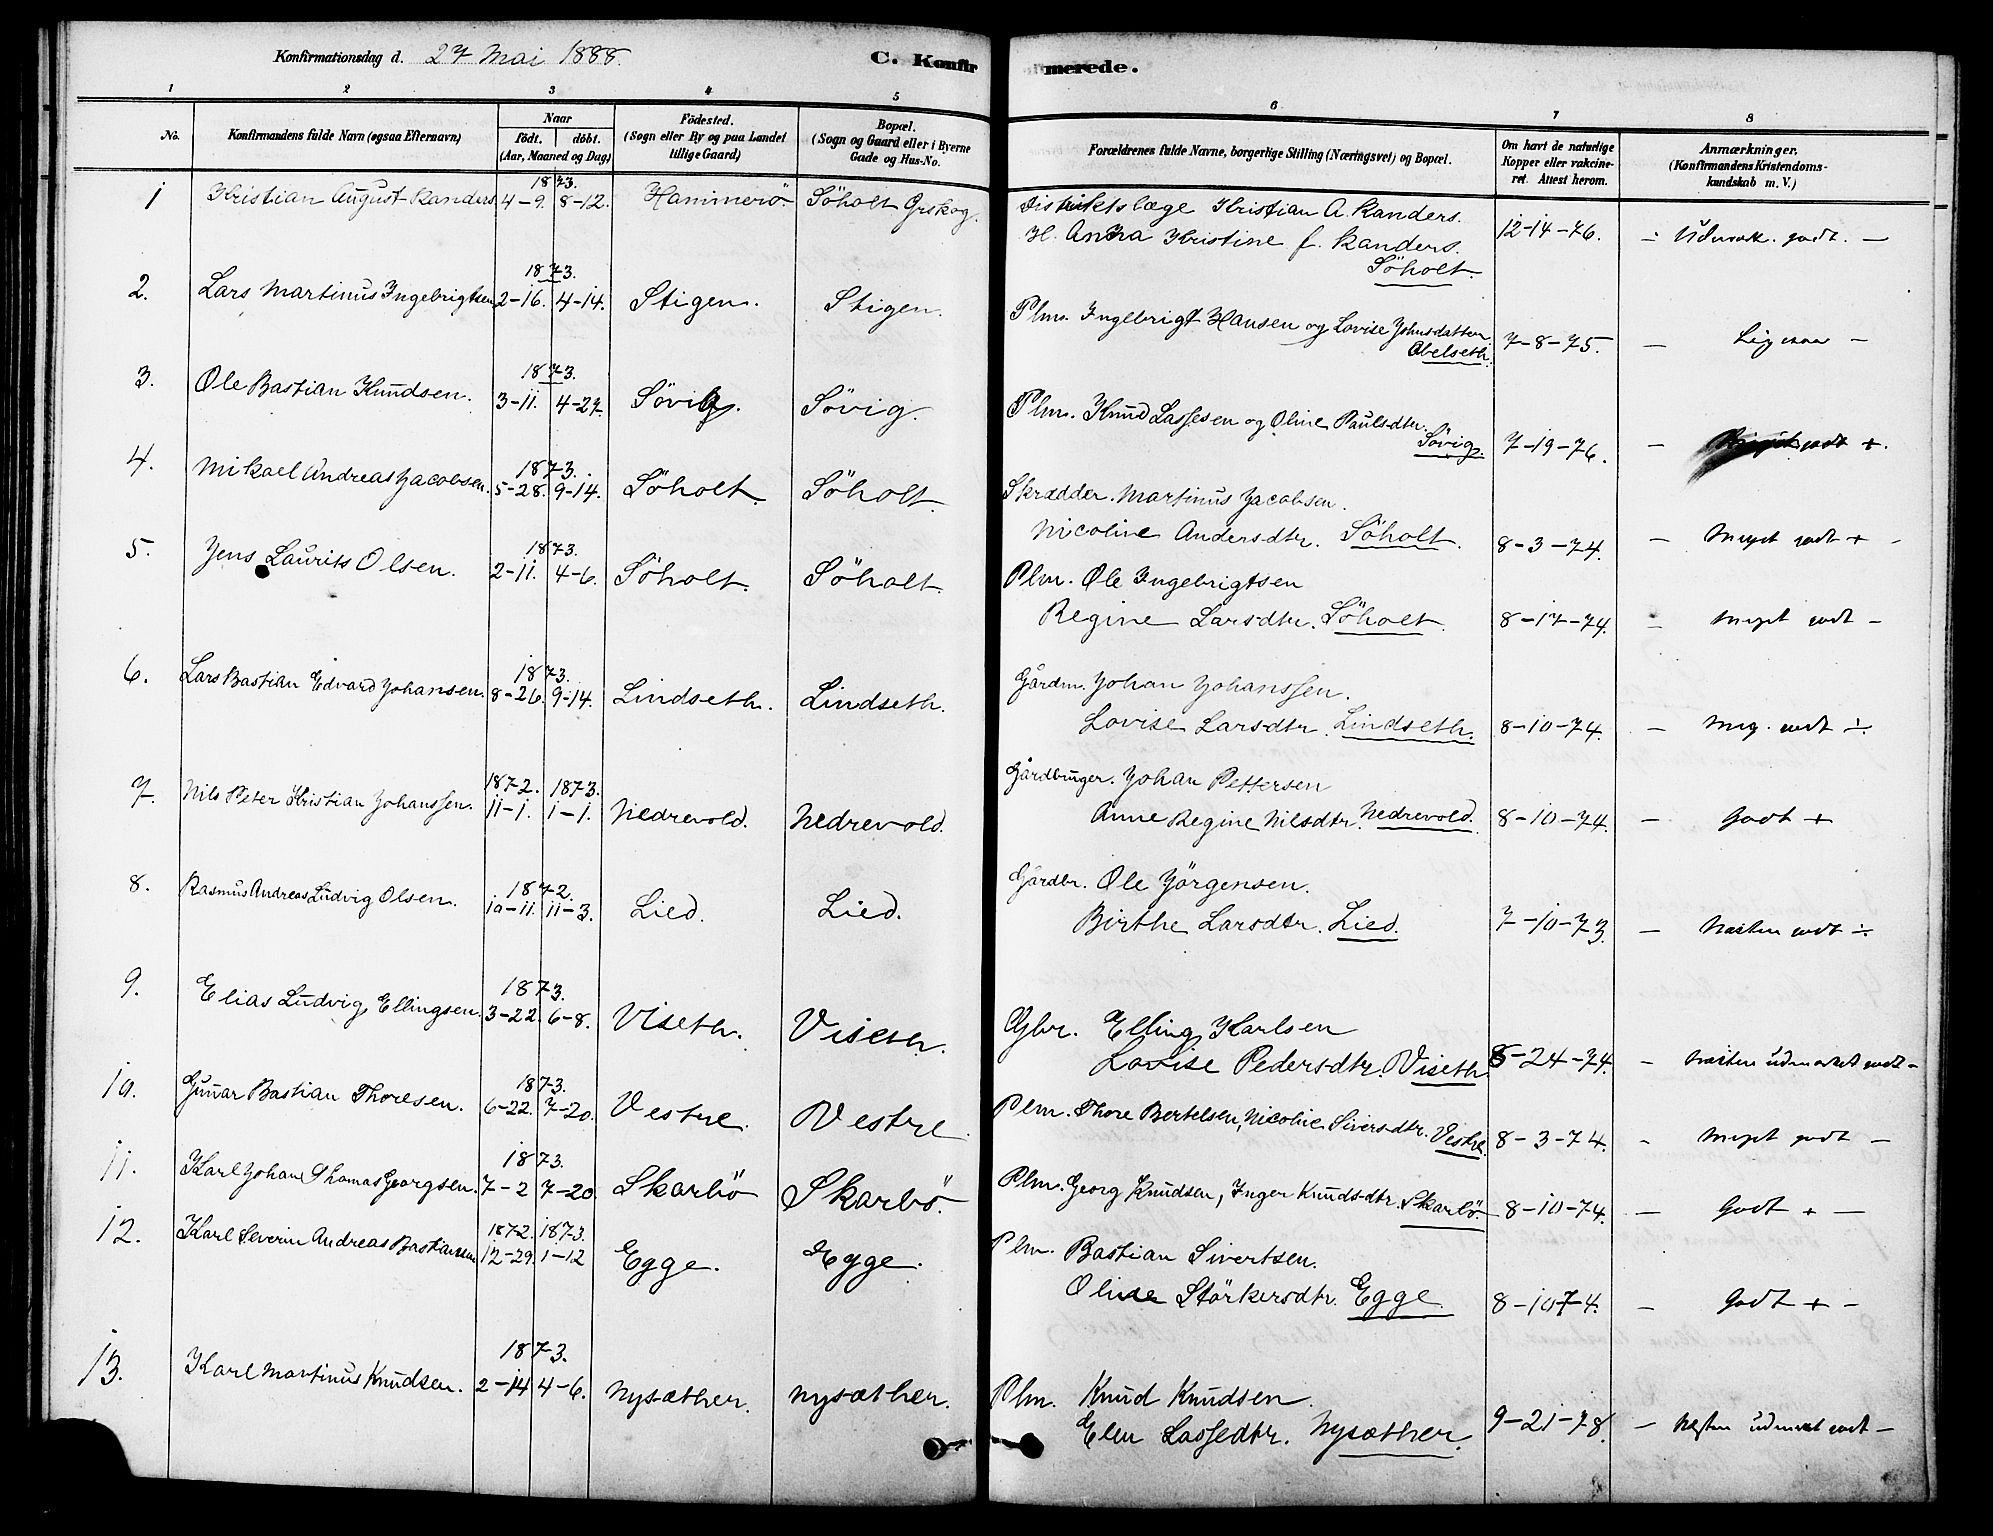 Konfirmationsdag d. 27 Mai 1888.
C. Konfirmerede.
1 2 3 4 5 6 7 8
No. Konfirmandens fulde Navn (ogsaa Efternavn) Naar födt. döbt. (Aar, Maaned og Dag) Födested. (Sogn eller By og paa Landet tillige Gaard) Bopæl. (Sogn og Gaard eller i Byerne Gade og Hus-No. Forældrenes fulde Navne, borgerlige Stilling (Næringsvei) og Bopæl. Om havt de naturlige Kopper eller vakcineret. Attest herom. Anmærkninger. (Konfirmandens Kristendomskundskab m. V.)
1873.
1 Kristian August Randers 4-9. 8-12. Hammerö. Söholt Ørskog. Distriktslæge Kristian A. Randers. 12-14-76. - Udmærk. godt. -
H. Anna Kristine f. Randers.
Söholt.
1873.
2. Lars Martinus Ingebrigtsen 2-16. 4-14. Stigen. Stigen. Plm. Ingebrigt Hansen og Lovise Johnsdatter 7-8-75. - Ligesaa -
Abelseth.
1873.
3. Ole Bastian Knudsen. 3-11. 4-27. Sövig. Sövig. Plm. Knud Lassesen og Oline Paulsdtr. 7-19-76. - godt +.
Sövig.
1873.
4. Mikael Andreas Jacobsen. 5-28. 9-14. Söholt Söholt. Skrædder. Martinus Jacobsen.
Nicoline Andersdtr. Söholt. 8-3-74. - Meget godt + -
1873.
5. Jens Laurits Olsen. 2-11. 4-6. Söholt. Söholt. Plm. Ole Ingebrigtsen
Regine Larsdtr. Söholt. 8-17-74. - Meget godt -
1873.
6. Lars Bastian Edvard Johansen. 8-26. 9-14. Lindseth. Lindseth. Gårdm. Johan Johanssen.
Lovise Larsdtr. Lindseth. 8-10-74. - Meg. godt ÷
1872. 1873.
7. Nils Peter Kristian Johanssen. 11-1. 1-1. Nedrevold. Nedrevold. Gårdbruger. Johan Pettersen
Anne Regine Nilsdtr. Nedrevold. 8-10-74. - Godt +
1872.
8. Rasmus Andreas Ludvig Olsen. 10-11. 11-3. Lied. Lied. Gårdbr. Ole Jörgensen.
Birthe Larsdtr. Lied. 7-10-73. - Næsten godt ÷
1873.
9. Elias Ludvig Ellingsen. 3-22. 6-8. Viseth. Viseth. Gbr. Elling Karlsen
Lovise Pedersdtr. Viseth. 8-24-74. - Næsten udmærket godt -
1873.
10. Gunnar Bastian Thoresen. 6-22. 7-20. Vestre. Vestre. Plm. Thore Bertelsen, Nicoline Siversdtr. Vestre. 8-3-74. - Meget godt -
1873.
11. Karl Johan Thomas Georgsen. 7-2 7-20. Skarbö Skarbö. Plm. Georg Knudsen, Inger Knudsdtr. Skarbö. 8-10-74. - Godt + -
1872. 1873.
12. Karl Severin Andreas Bastianssen 12-29. 1-12 Egge. Egge. Plm. Bastian Sivertsen.
Oline Störkersdtr. Egge. 8-1074. - Godt + -
1873.
13. Karl Martinus Knudsen. 2-14 4-6. Nysæther. Nysæther. Plm. Knud Knudsen.
Elen Lassedtr. Nysæther. 9-21-78. - Næsten udmærket godt -